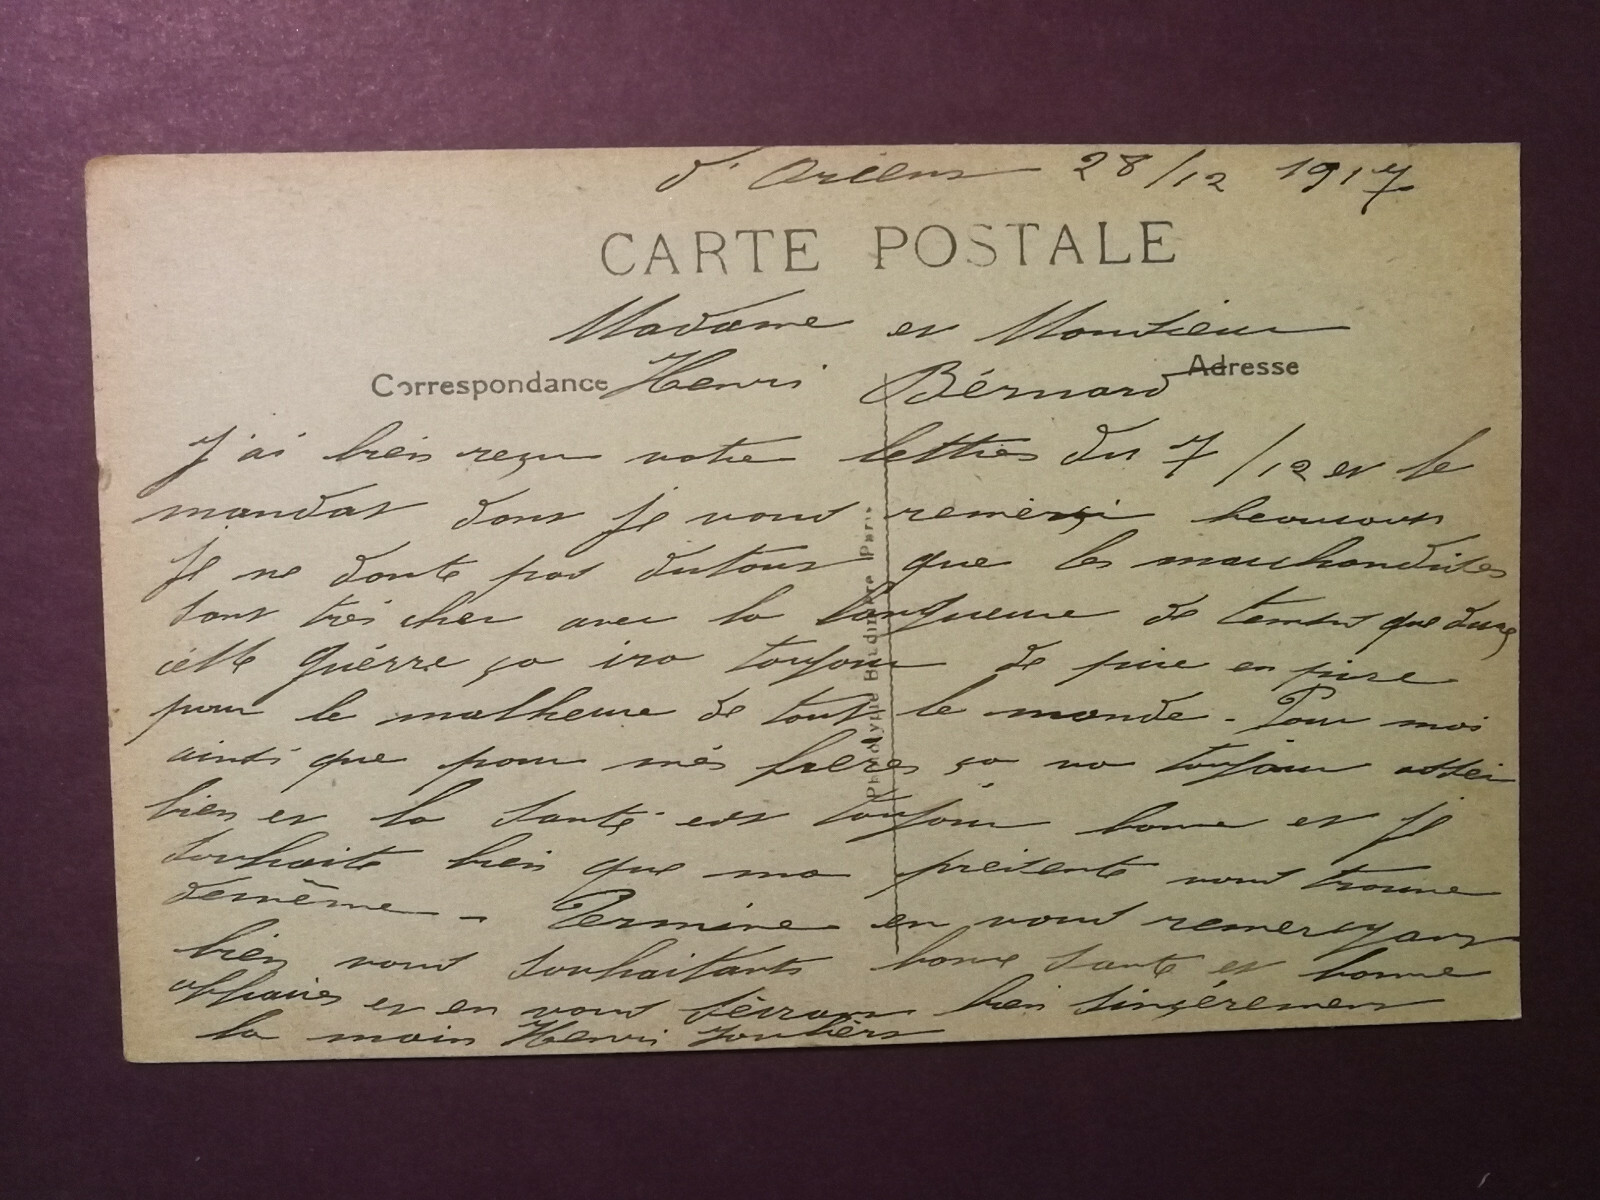 d'Orient 28/12 1917
CARTE POSTALE
Madame et Monsieur
Correspondance Henri Bérnard Adresse
J'ai bien reçu votre lettres du 7/12 et le
mandat dont je vous remérçi beaucoup
Je ne doute pas dutout que les marchandises
sont très cher avec la longueure de temps que dure
cette Guérre ça ira toujour de pire en pire
pour le malheure de tout le monde - Pour moi
ainsi que pour més frères ça va toujour assei
bien et la santé est toujour bonne et je
souhaite bien que ma présente vous trouve
demême - Termine en vous remerçyant
bien vous souhaitants bonne santé et bonne
affaires et en vous sérrant bien sinçérement
la main Henri
Phototypie Baudinière Paris